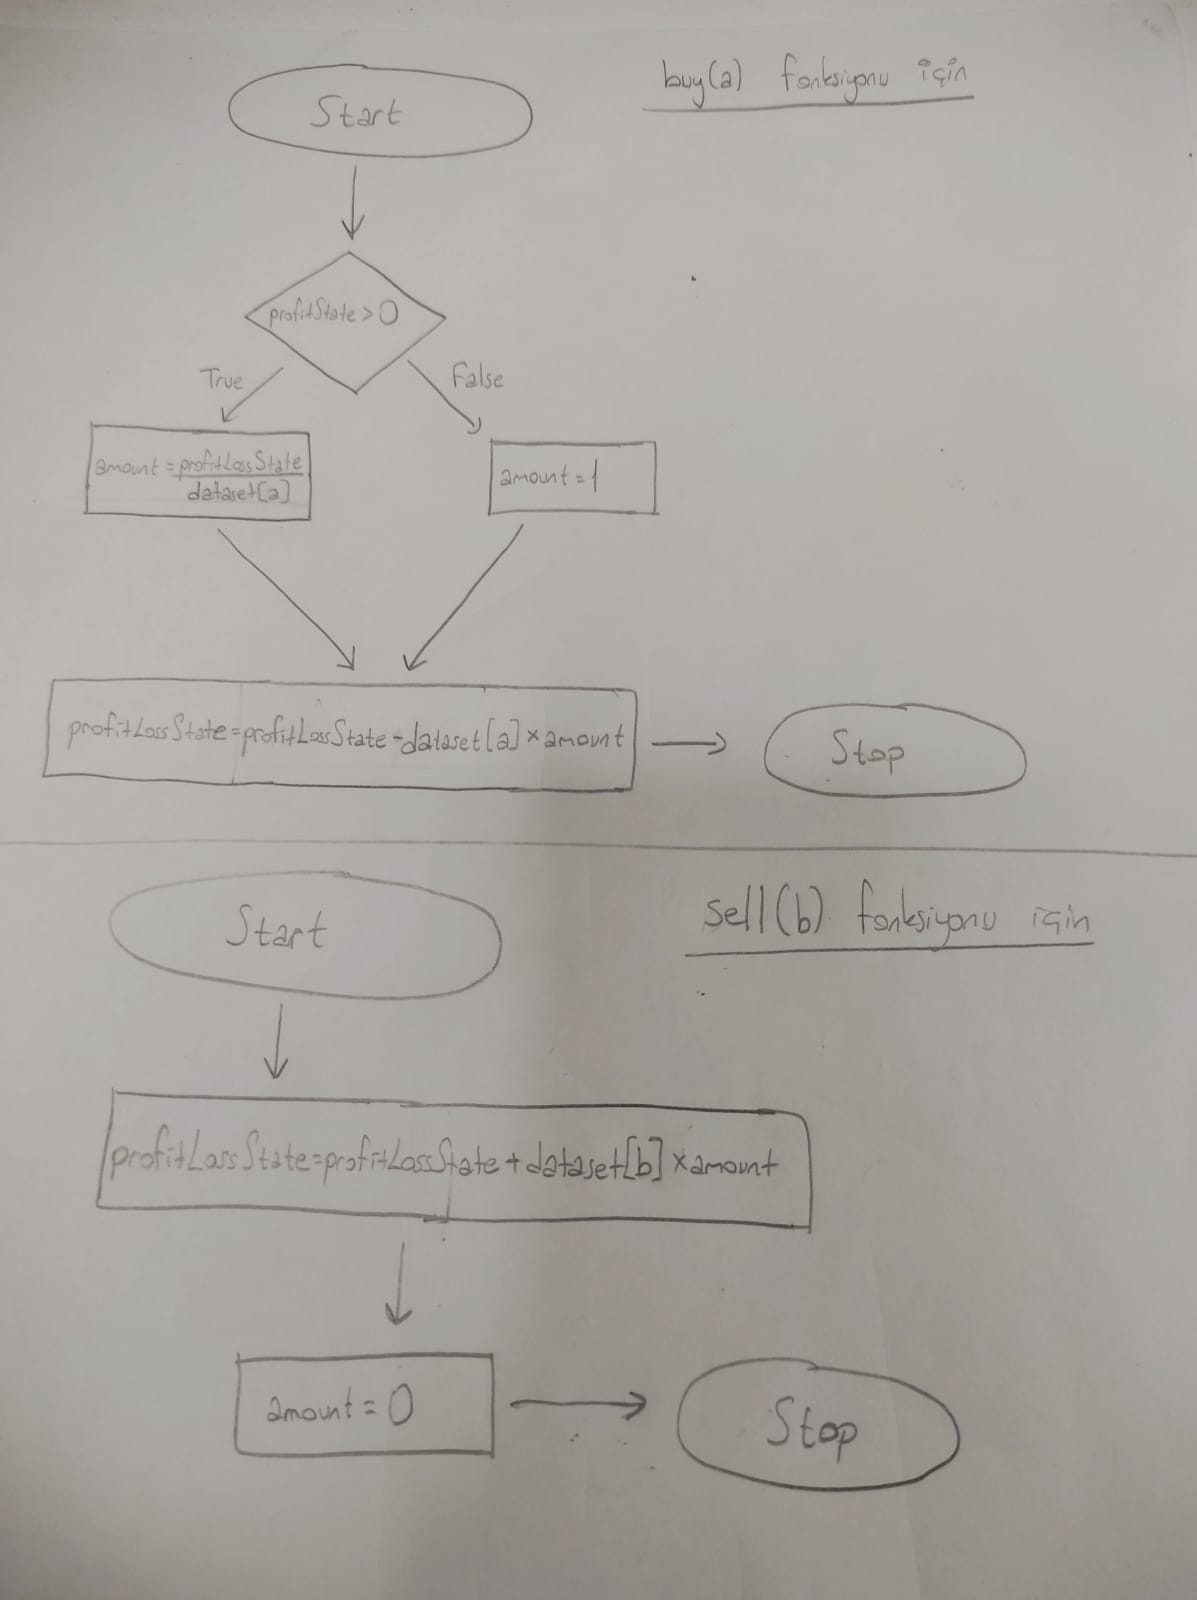 buy(a) fonksiyonu için
Start
profitState > 0
True
False
amount = profitLossState
dataset[a]
amount = 1
profitLossState = profitLossState - dataset[a] × amount
Stop
sell(b) fonksiyonu için
Start
profitLossState = profitLossState + dataset[b] × amount
amount = 0
Stop